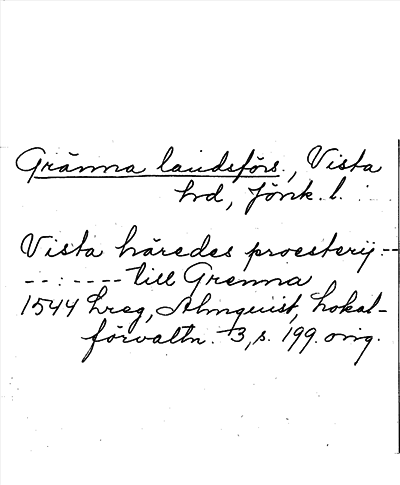 Gränna landsförs., Vista
hrd, Jönk. l.
Vista häredes proesterij --
-- : ---- till Grenna
1544 hreg, Almquist, Lokal-
förvaltn. 3, s. 199. orig.